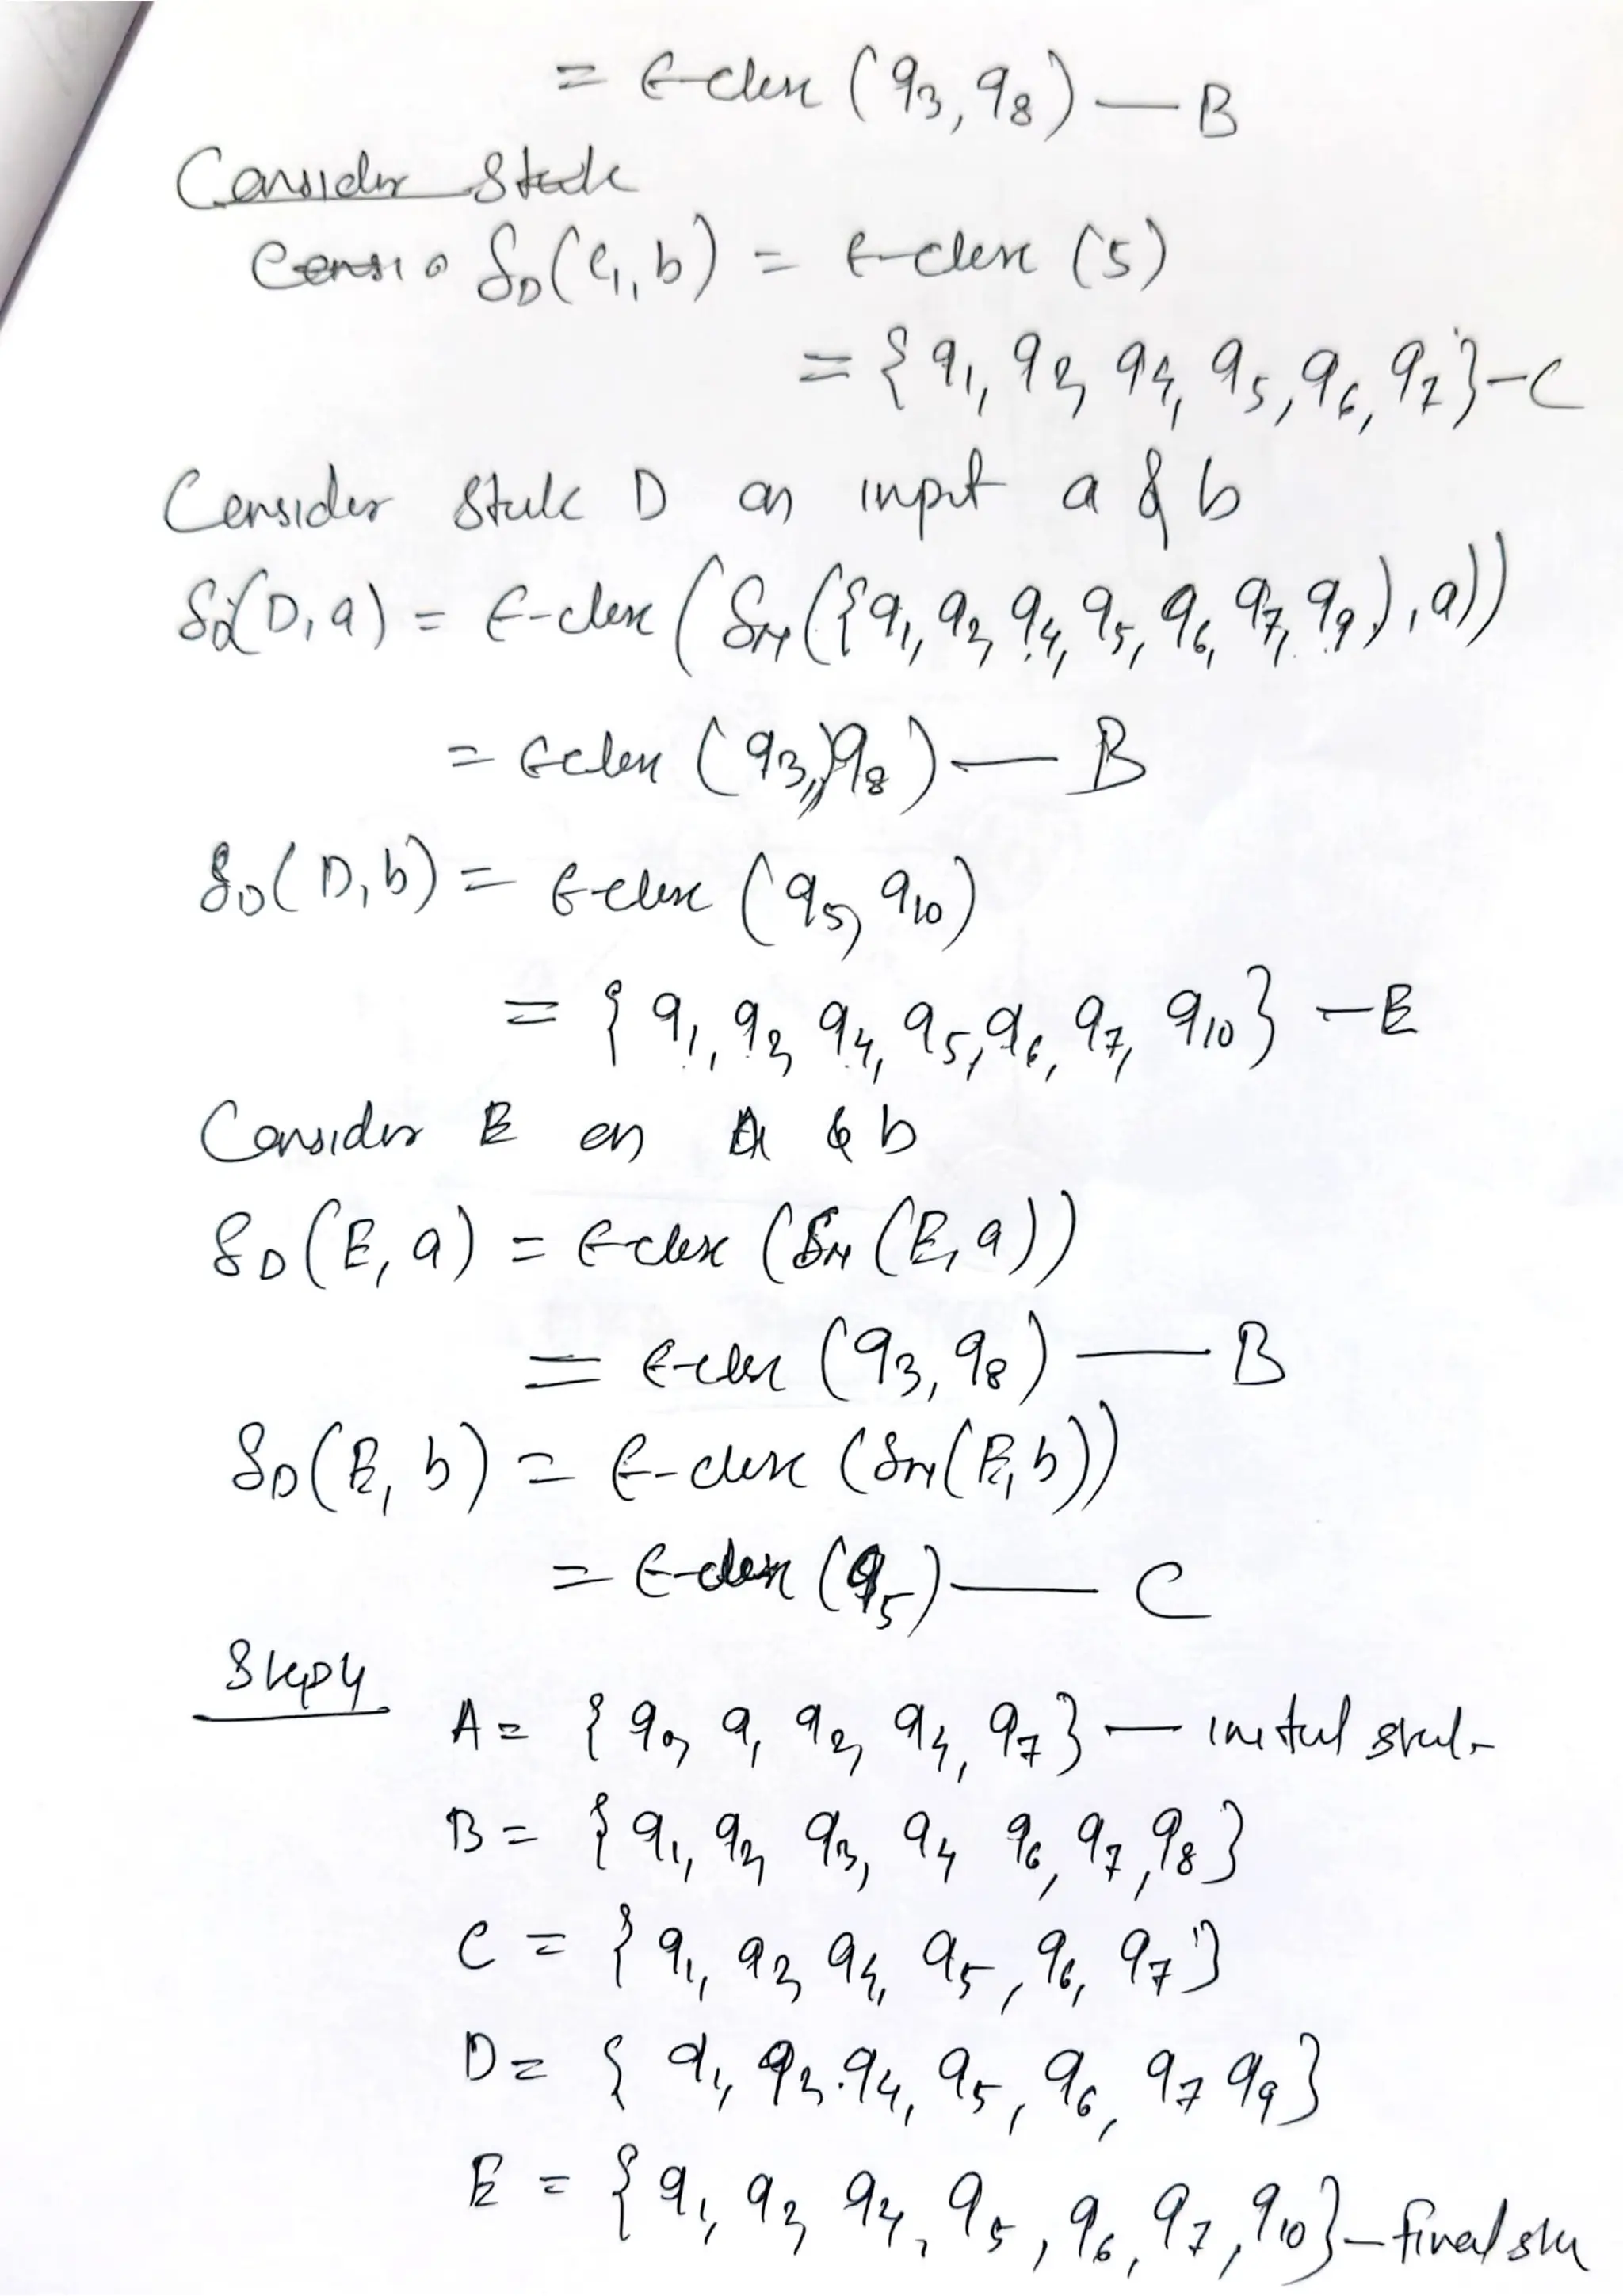 = ε-closure (q3, q8) — B
Consider State
Consio δD(C, b) = ε-closure (5)
= {q1, q2, q4, q5, q6, q7} - C
Consider State D on input a & b
δD(D, a) = ε-closure (δN({q1, q2, q4, q5, q6, q7, q9), a))
= ε-closure (q3, q8) — B
δD(D, b) = ε-closure (q5, q10)
= {q1, q2, q4, q5, q6, q7, q10} - E
Consider E on a & b
δD(E, a) = ε-closure (δN(E, a))
= ε-closure (q3, q8) — B
δD(E, b) = ε-closure (δN(E, b))
= ε-closure (q5) — C
Step 4
A = {q0, q1, q2, q4, q7} — initial state
B = {q1, q2, q3, q4 q6, q7, q8}
C = {q1, q2, q4, q5, q6, q7}
D = {q1, q2, q4, q5, q6, q7 q9}
E = {q1, q2, q4, q5, q6, q7, q10} - final state